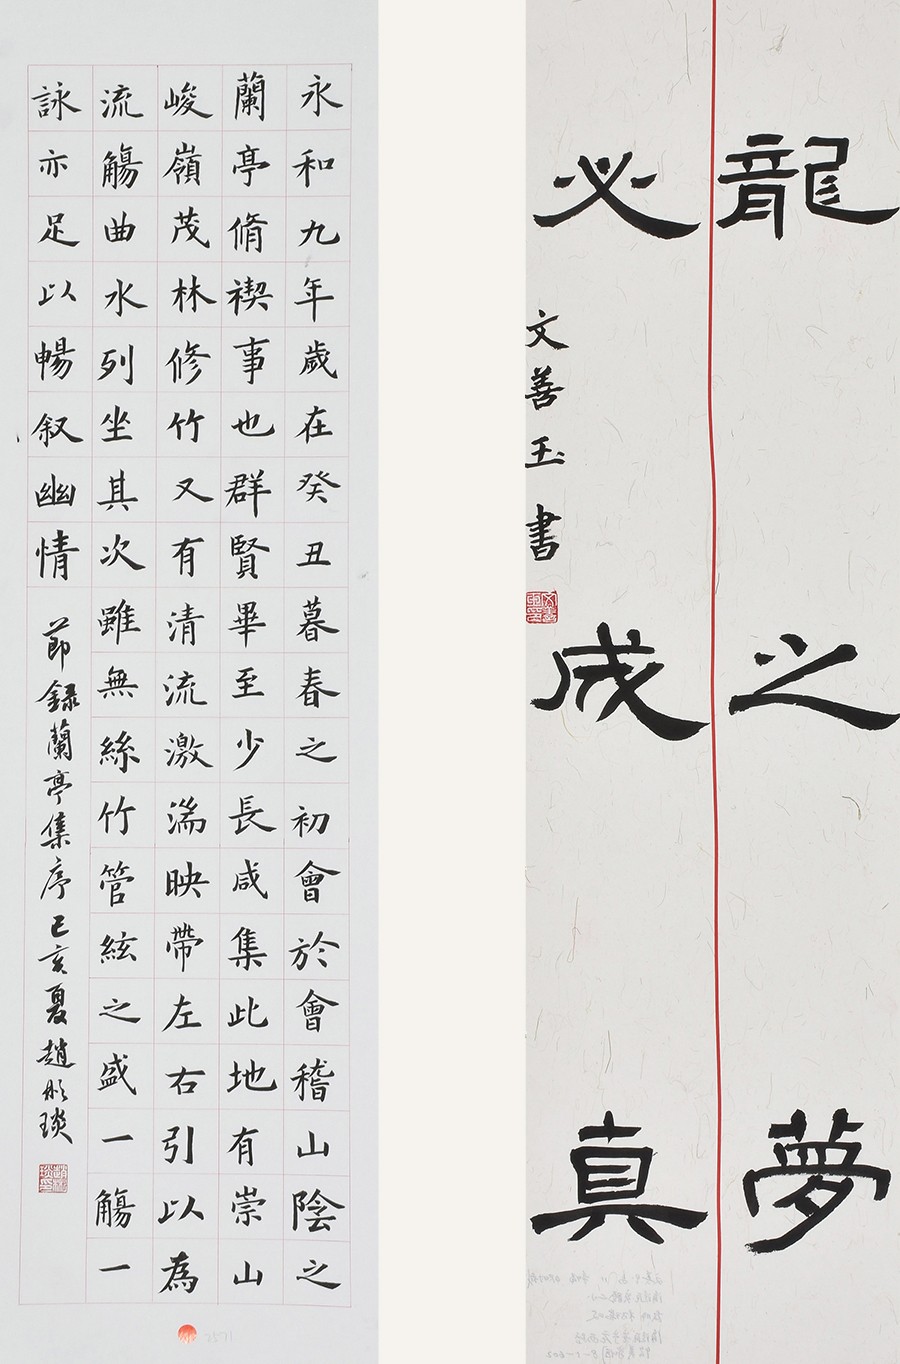 永和九年歲在癸丑暮春之初會於會稽山陰之
蘭亭脩禊事也群賢畢至少長咸集此地有崇山
峻嶺茂林修竹又有清流激湍映帶左右引以為
流觴曲水列坐其次雖無絲竹管絃之盛一觴一
詠亦足以暢叙幽情
節錄蘭亭集序己亥夏趙彤琰
龍之夢
必成真
文善玉書